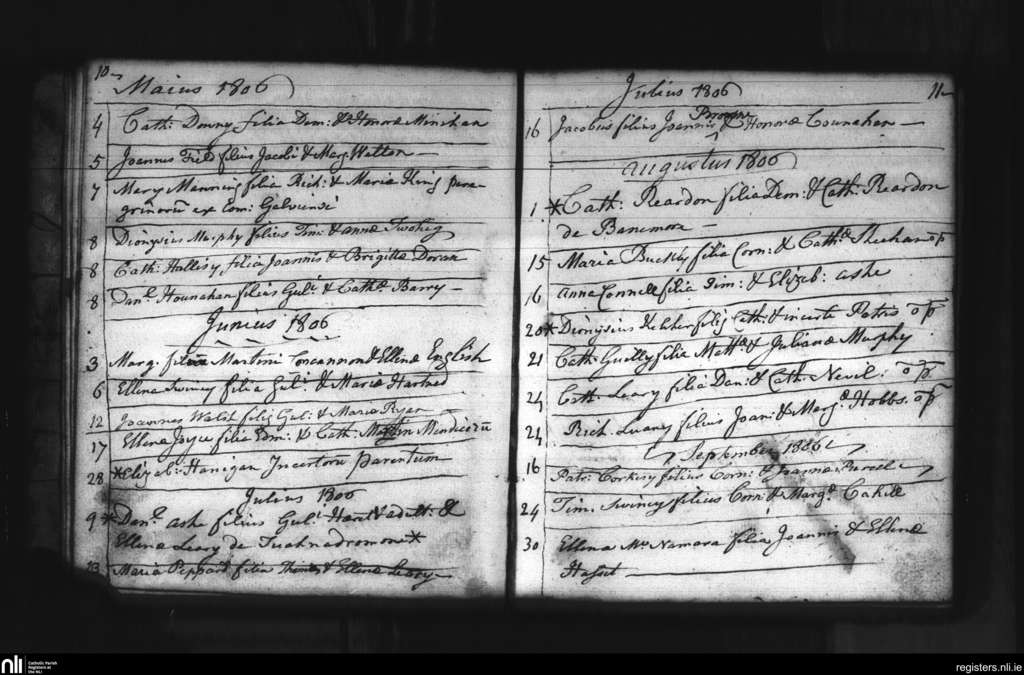 10
Maius 1806
4 Cath: Downy filia Dem: & Honoræ Minihan
5 Joannes Field filius Jacobi & Marg Walton
7 Mary Manning filia Rich: & Maria King pere-
grinorū ex Com: Galviensi
8 Dionysius Murphy filius Tim: & annæ Twohig
8 Cath: Hallisy, filia Joannis & Brigittæ Doran
8 Danl. Hounahan filius Gull & Cathe Barry
Junius 1806
3 Marg. filia Martini Concannon & Ellenæ English
6 Ellena Swiney filia Gull: & Mariæ Hartned
12 Joannes Walsh filij Gul: & Maria Ryan
17 Ellena Joyce filia Edm: & Cath: Mendicorū
28 *Elizab: Hanigan Incertorū parentum
Julius 1806
9 *Danl. ashe filius Gull &
Ellena Leary de Tuahnadromone*
13 Maria Peppard filia Thomæ & Ellenæ Leary
Julius 1806 11
16 Jacobus filius Joannis Brown & Honoræ Counahan
augustus 1806
1. *Cath: Reardon filia Dem: & Cath: Reardon
de Banemore
15 Maria Buckly filia Corn: & Cathe Sheehan op
16 anna Connell filia Tim: & Elizab: ashe
20* Dionysius Kelcher filij Cath: & incerte Patris op
21 Cath: Guilly filia Matt: & Julianæ Murphy
24 Cath: Leary filia Dan: & Cath: Nevil: op
24 Rich. Lueny filius Joan: & Marg: Hobbs. op
September 1806
16 Patr: Corkery filius Corn: & Joannæ Purcell
24 Tim. Swiney filius Corn: & Marg: Cahill
30 Ellena Mc Namara filia Joannis & Ellenæ
Hasset
nli
Catholic Parish
Registers at
the NLI
registers.nli.ie